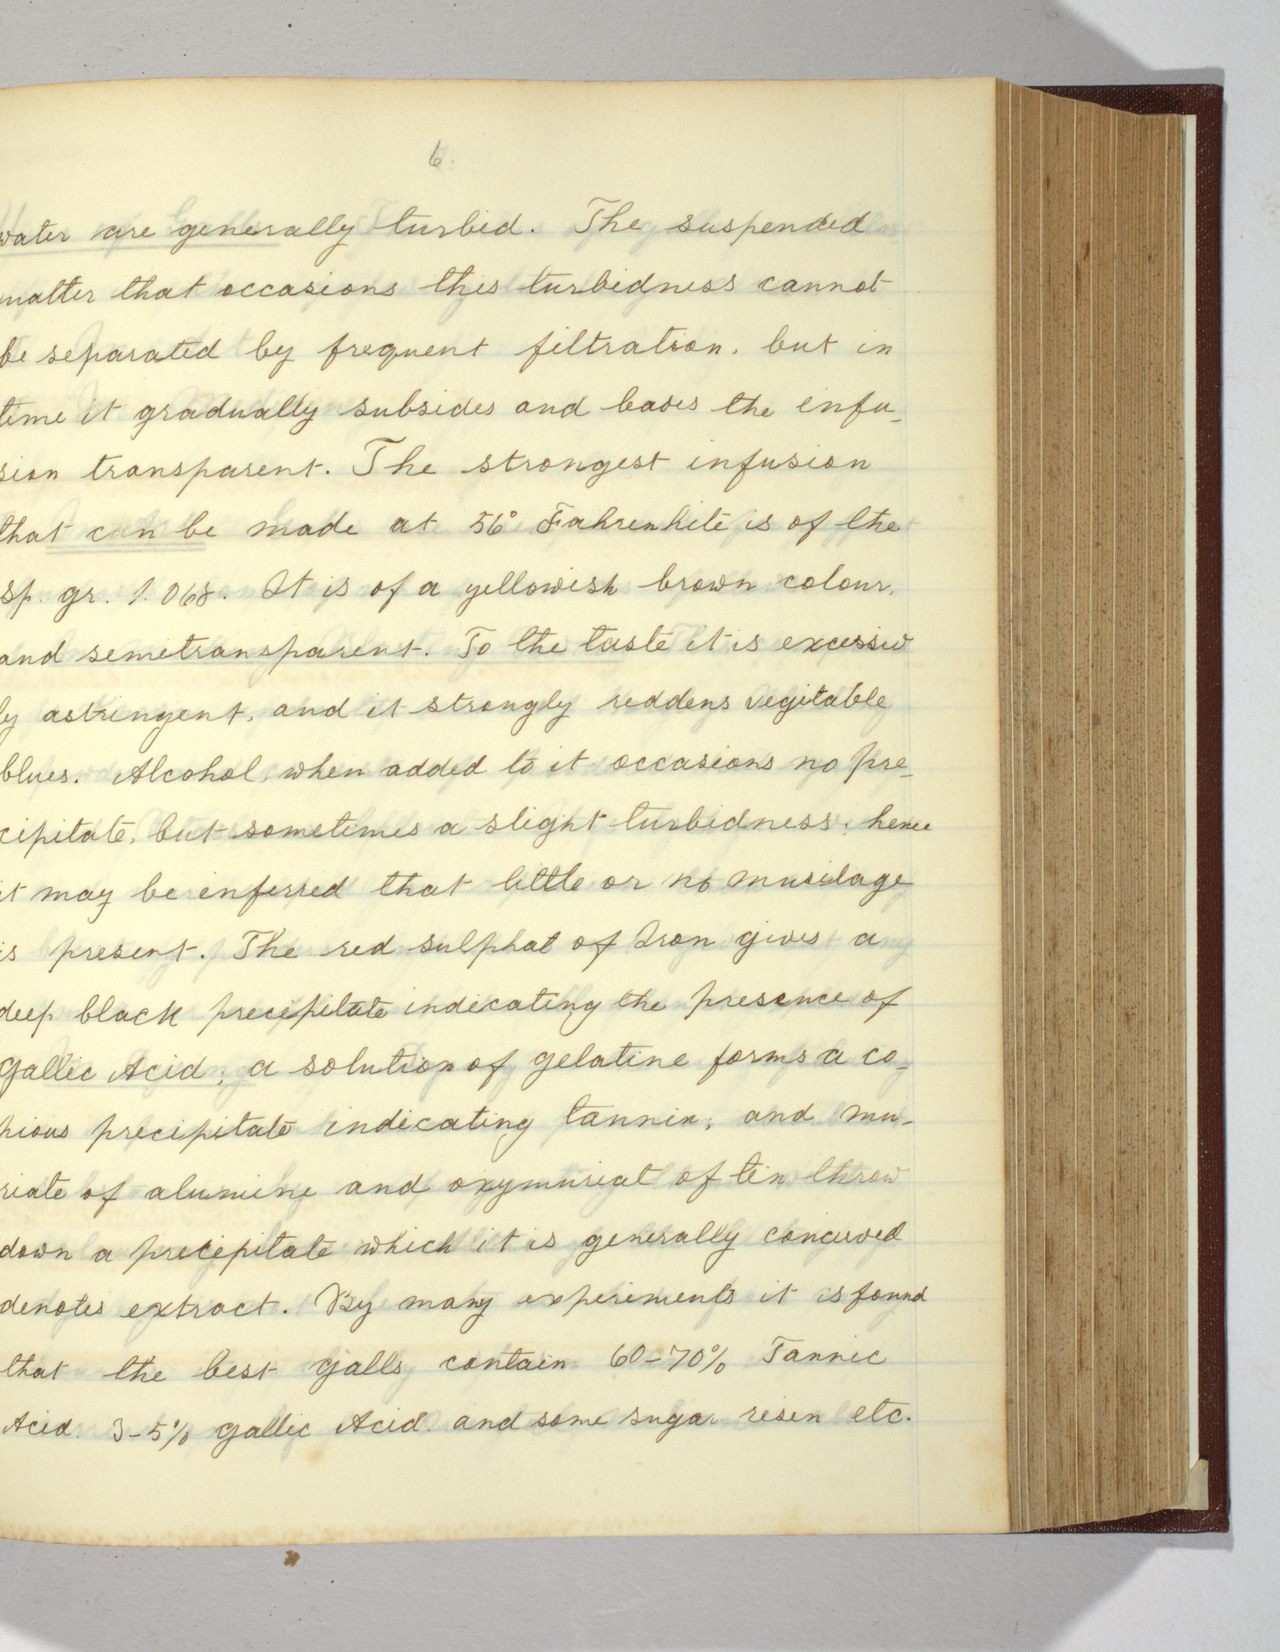 6.
water are generally turbid. The suspended
matter that occasions this turbidness cannot
be separated by frequent filtration, but in
time it gradually subsides and leaves the infu-
sion transparent. The strongest infusion
that can be made at 56° Fahrenhite is of the
sp. gr. 1.068. It is of a yellowish brown colour,
and semitransparent. To the taste it is excessiv
ly astringent, and it strongly reddens vegitable
blues. Alcohol, when added to it occasions no pre-
cipitate, but sometimes a slight turbidness; hence
it may be inferred that little or no musilage
is present. The red sulphat of Iron gives a
deep black precipitate indicating the presence of
Gallic Acid; a solution of gelatine forms a co-
pious precipitate indicating tannin; and mu-
riate of alumine and oxymuriat of tin throw
down a precipitate which it is generally concieved
denotes extract. By many experiments it is found
that the best galls contain 60-70% Tannic
Acid. 3-5% gallic Acid. and some sugar resin etc.